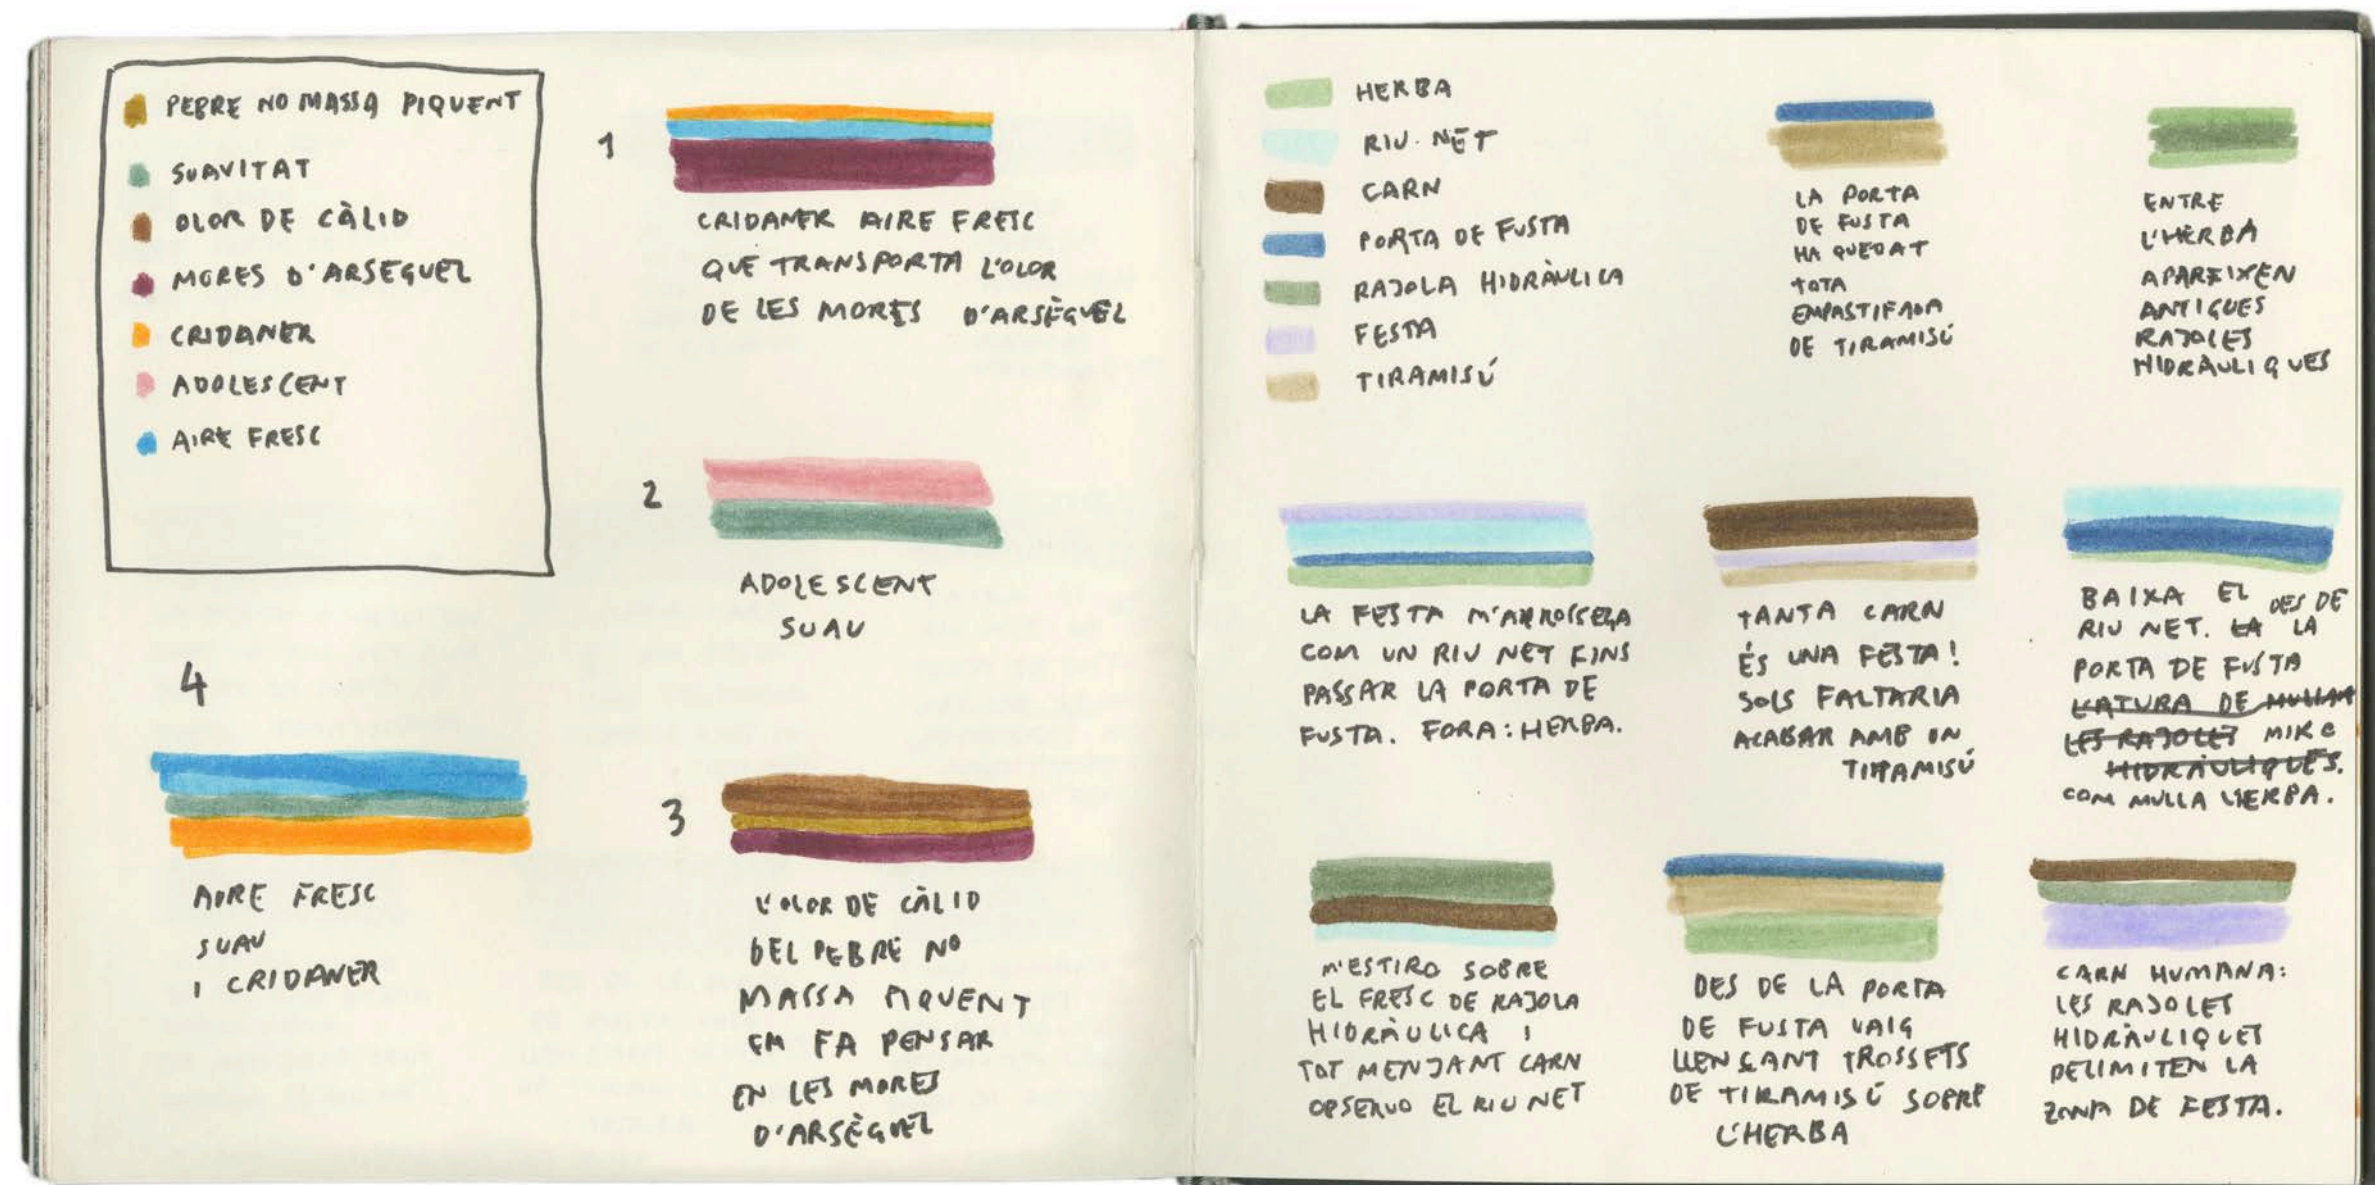 PEBRE NO MASSA PIQUENT
SUAVITAT
OLOR DE CÀLID
MORES D'ARSEGUEL
CRIDANER
ADOLESCENT
AIRE FRESC
1
CRIDANER AIRE FRESC
QUE TRANSPORTA L'OLOR
DE LES MORES D'ARSÈGUEL
2
ADOLESCENT
SUAU
4
AIRE FRESC
SUAU
I CRIDANER
3
L'OLOR DE CÀLID
DEL PEBRE NO
MASSA PIQUENT
EM FA PENSAR
EN LES MORES
D'ARSÈGUEL
HERBA
RIU NET
CARN
PORTA DE FUSTA
RAJOLA HIDRÀULICA
FESTA
TIRAMISÚ
LA PORTA
DE FUSTA
HA QUEDAT
TOTA
EMPASTIFADA
DE TIRAMISÚ
ENTRE
L'HERBA
APAREIXEN
ANTIGUES
RAJOLES
HIDRÀULIQUES
LA FESTA M'ARROSSEGA
COM UN RIU NET FINS
PASSAR LA PORTA DE
FUSTA. FORA: HERBA.
TANTA CARN
ÉS UNA FESTA!
SOLS FALTARIA
ACABAR AMB UN
TIRAMISÚ
BAIXA EL DES DE
RIU NET. LA LA
PORTA DE FUSTA
L'ATURA DE MULLAR
LES RAJOLES MIRO
HIDRÀULIQUES.
COM MULLA L'HERBA.
M'ESTIRO SOBRE
EL FRESC DE RAJOLA
HIDRÀULICA I
TOT MENJANT CARN
OBSERVO EL RIU NET
DES DE LA PORTA
DE FUSTA VAIG
LLENÇANT TROSSETS
DE TIRAMISÚ SOBRE
L'HERBA
CARN HUMANA:
LES RAJOLES
HIDRÀULIQUES
DELIMITEN LA
ZONA DE FESTA.